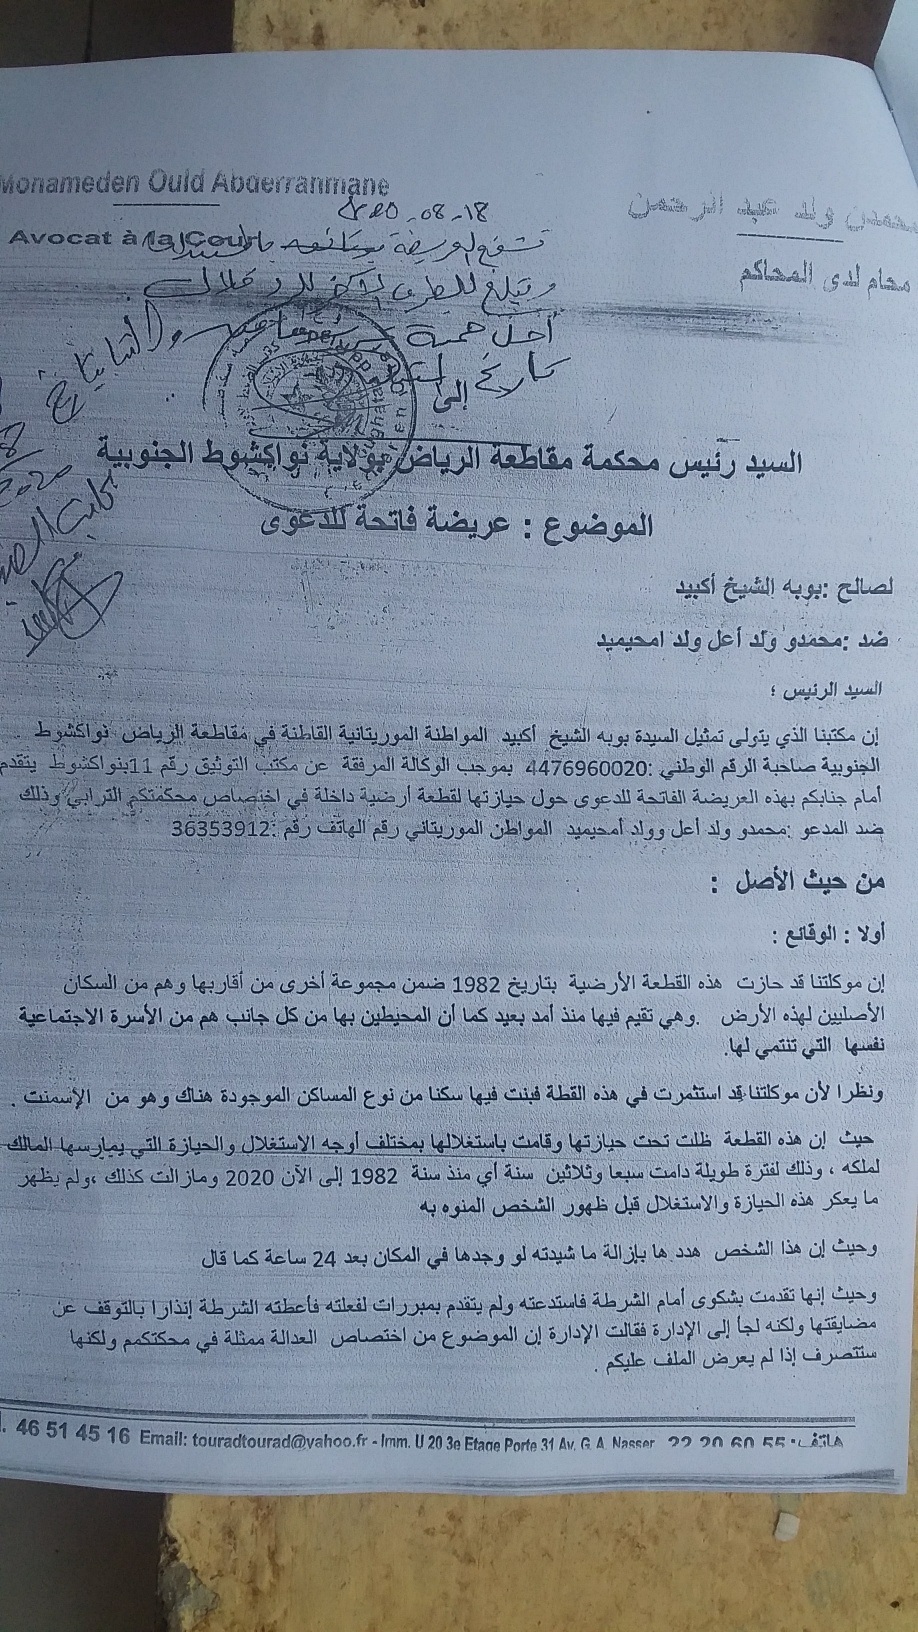 Monameden Ould Abderranmane
محمدن ولد عبد الرحمن
Avocat à la Cour
محام لدى المحاكم
2020-08-18
إلى
السيد رئيس محكمة مقاطعة الرياض بولاية نواكشوط الجنوبية
الموضوع : عريضة فاتحة للدعوى
لصالح :بوبه الشيخ أكبيد
ضد :محمدو ولد أعل ولد امحيميد
السيد الرئيس ؛
إن مكتبنا الذي يتولى تمثيل السيدة بوبه الشيخ أكبيد المواطنة الموريتانية القاطنة في مقاطعة الرياض نواكشوط
الجنوبية صاحبة الرقم الوطني :4476960020 بموجب الوكالة المرفقة عن مكتب التوثيق رقم 11بنواكشوط يتقدم
أمام جنابكم بهذه العريضة الفاتحة للدعوى حول حيازتها لقطعة أرضية داخلة في اختصاص محكمتكم الترابي وذلك
ضد المدعو :محمدو ولد أعل وولد أمحيميد المواطن الموريتاني رقم الهاتف رقم :36353912
من حيث الأصل :
أولا : الوقائع :
إن موكلتنا قد حازت هذه القطعة الأرضية بتاريخ 1982 ضمن مجموعة أخرى من أقاربها وهم من السكان
الأصليين لهذه الأرض .وهي تقيم فيها منذ أمد بعيد كما أن المحيطين بها من كل جانب هم من الأسرة الاجتماعية
نفسها التي تنتمي لها.
ونظرا لأن موكلتنا قد استثمرت في هذه القطة فبنت فيها سكنا من نوع المساكن الموجودة هناك وهو من الإسمنت .
حيث إن هذه القطعة ظلت تحت حيازتها وقامت باستغلالها بمختلف أوجه الاستغلال والحيازة التي يمارسها المالك
لملكه ، وذلك لفترة طويلة دامت سبعا وثلاثين سنة أي منذ سنة 1982 إلى الآن 2020 ومازالت كذلك ،ولم يظهر
ما يعكر هذه الحيازة والاستغلال قبل ظهور الشخص المنوه به
وحيث إن هذا الشخص هدد ها بإزالة ما شيدته لو وجدها في المكان بعد 24 ساعة كما قال
وحيث إنها تقدمت بشكوى أمام الشرطة فاستدعته ولم يتقدم بمبررات لفعلته فأعطته الشرطة إنذارا بالتوقف عن
مضايقتها ولكنه لجأ إلى الإدارة فقالت الإدارة إن الموضوع من اختصاص العدالة ممثلة في محكتكم ولكنها
ستتصرف إذا لم يعرض الملف عليكم .
46 51 45 16 Email: touradtourad@yahoo.fr - Imm. U 20 3e Etage Porte 31 Av. G. A. Nasser 22 20 60 55 :هاتف